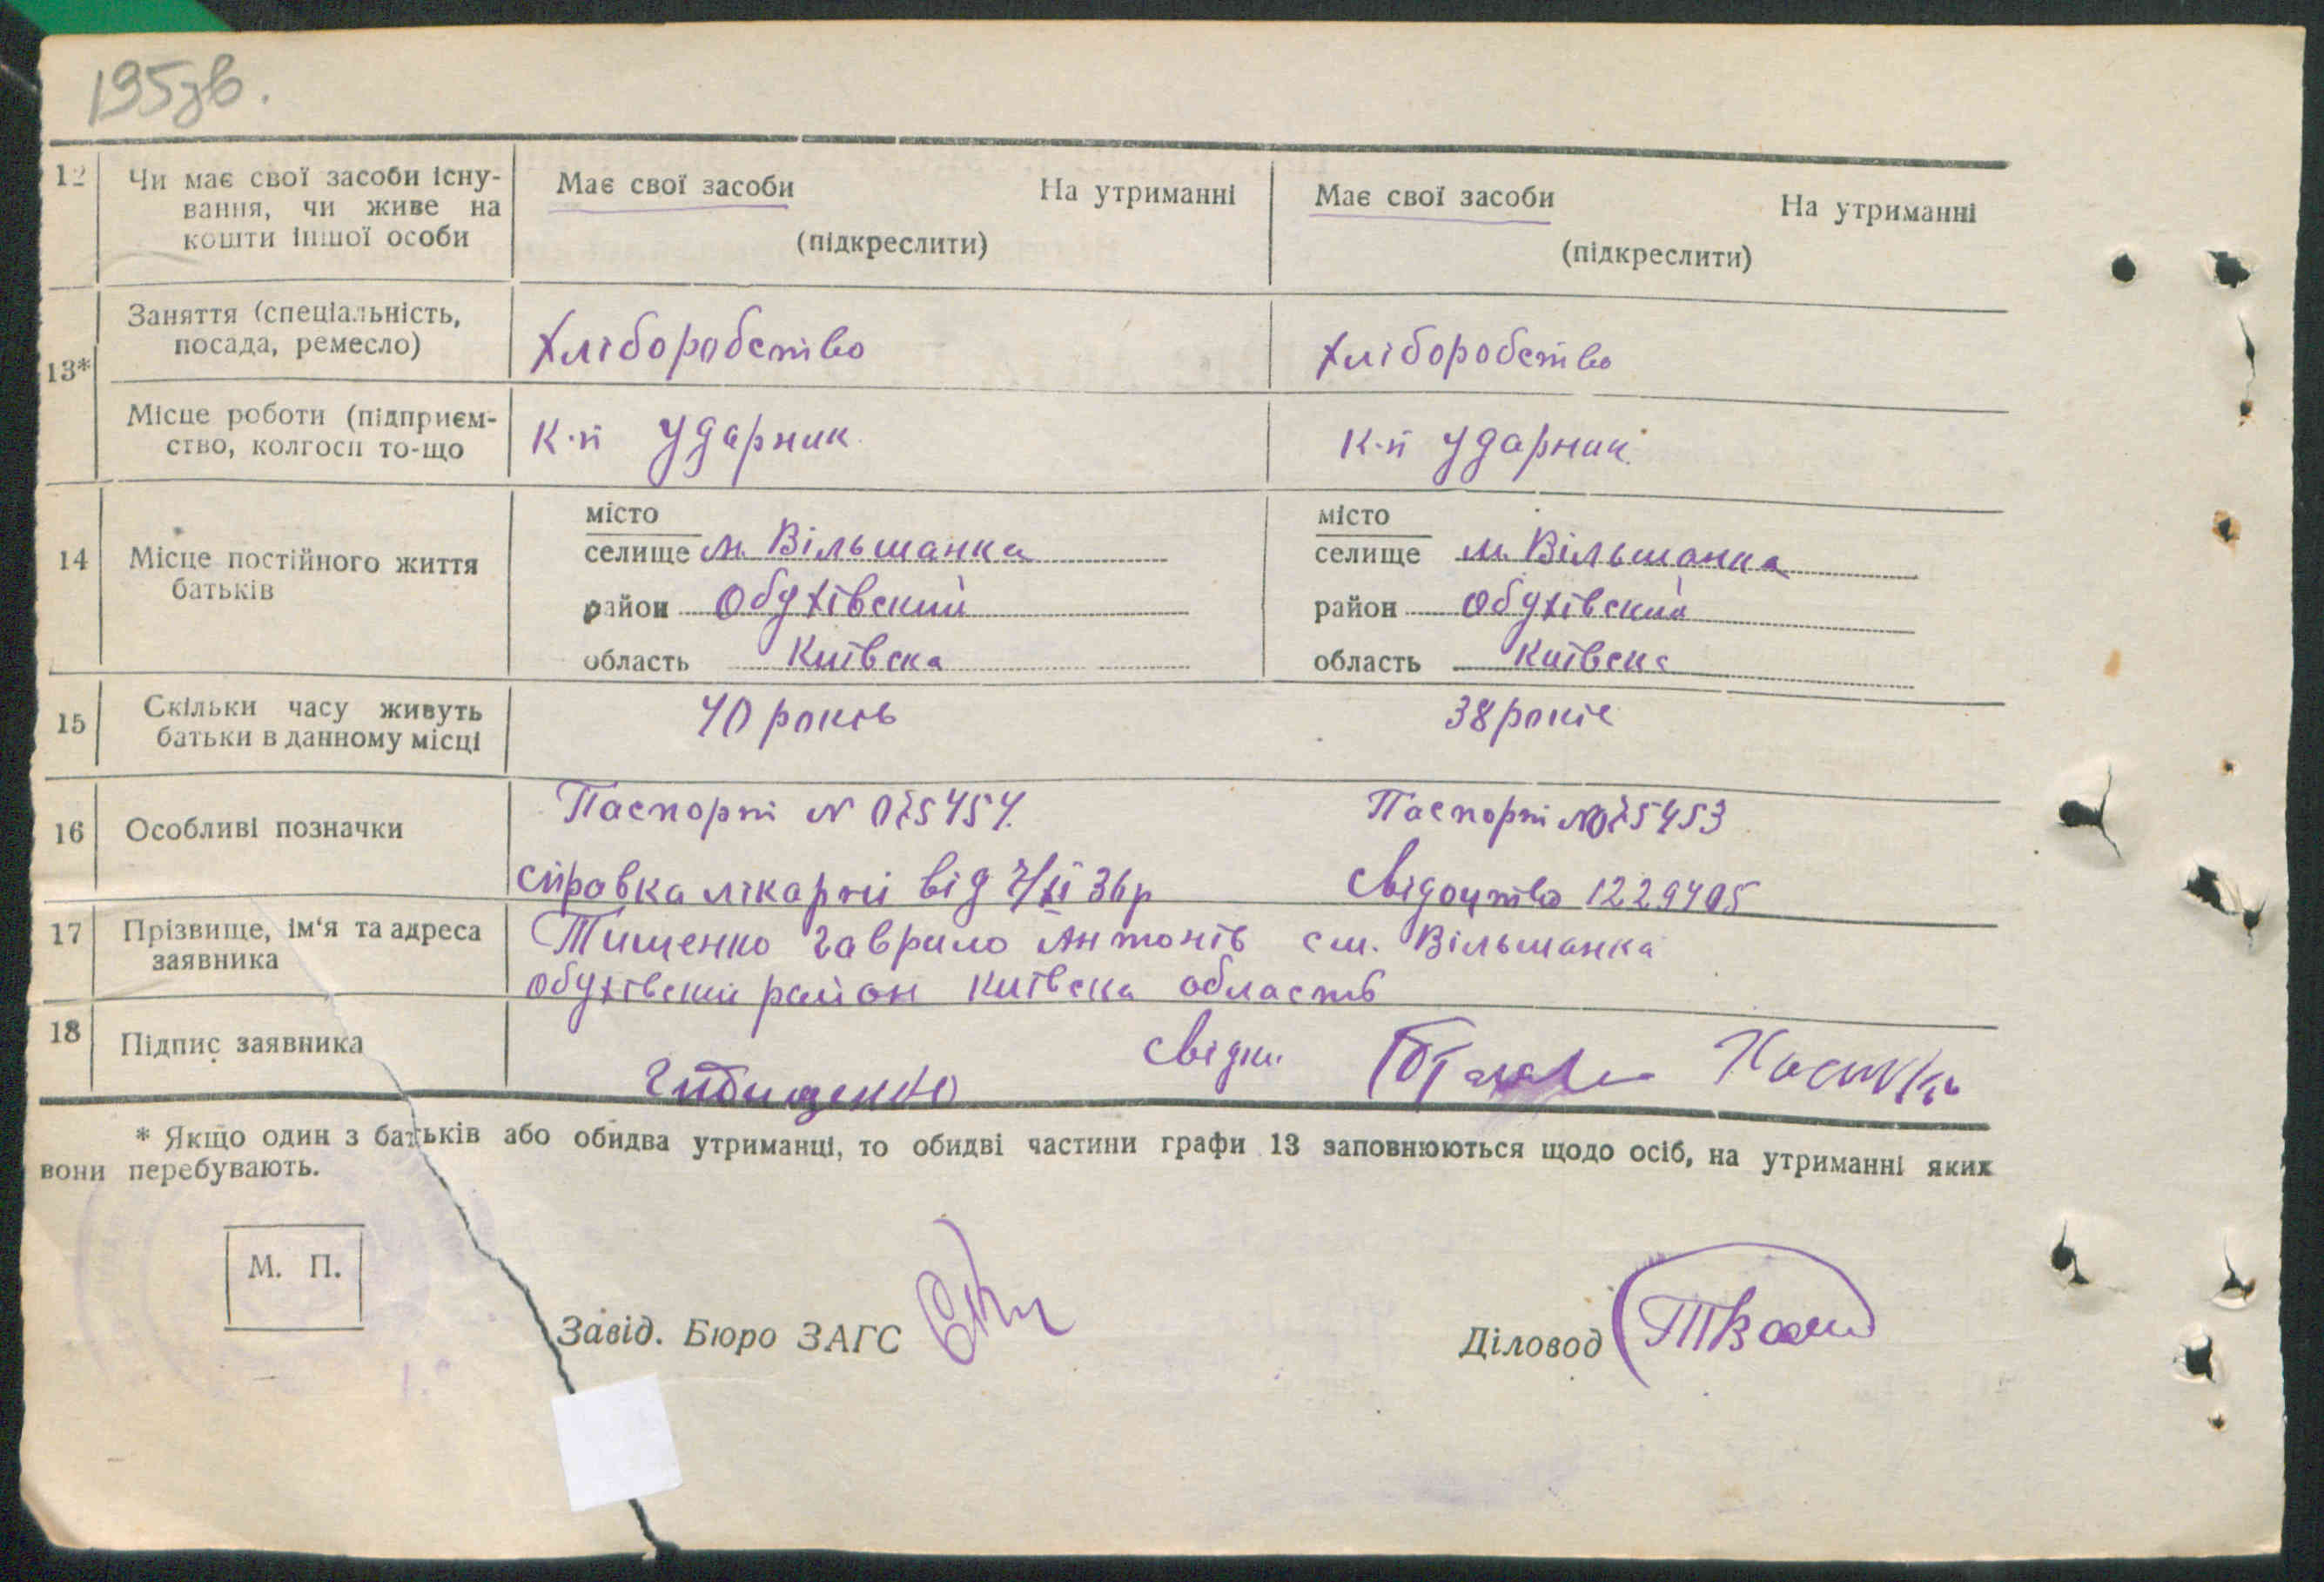 195зв.
12 Чи має свої засоби існу-
вання, чи живе на
кошти іншої особи
Має свої засоби На утриманні
(підкреслити)
Має свої засоби На утриманні
(підкреслити)
13*
Заняття (спеціальність,
посада, ремесло)
Хліборобство
Хліборобство
Місце роботи (підприєм-
ство, колгосп то-що
К-п Ударник
К-п Ударник
14 Місце постійного життя
батьків
місто
селище м. Вільшанка
район Обухівский
область Київска
місто
селище м. Вільшанка
район Обухівский
область Київска
15 Скільки часу живуть
батьки в данному місці
40 років
38 років
16 Особливі позначки
Паспорт N
Паспорт N
справка лікарні від 36р
Свідоцтво 1229405
17 Прізвище, ім'я та адреса
заявника
Тищенко Гаврило Антонів см. Вільшанка
Обухівский район Київска область
18 Підпис заявника
Свідки
* Якщо один з батьків або обидва утриманці, то обидві частини графи 13 заповнюються щодо осіб, на утриманні яких
вони перебувають.
М. П.
Завід. Бюро ЗАГС
Діловод